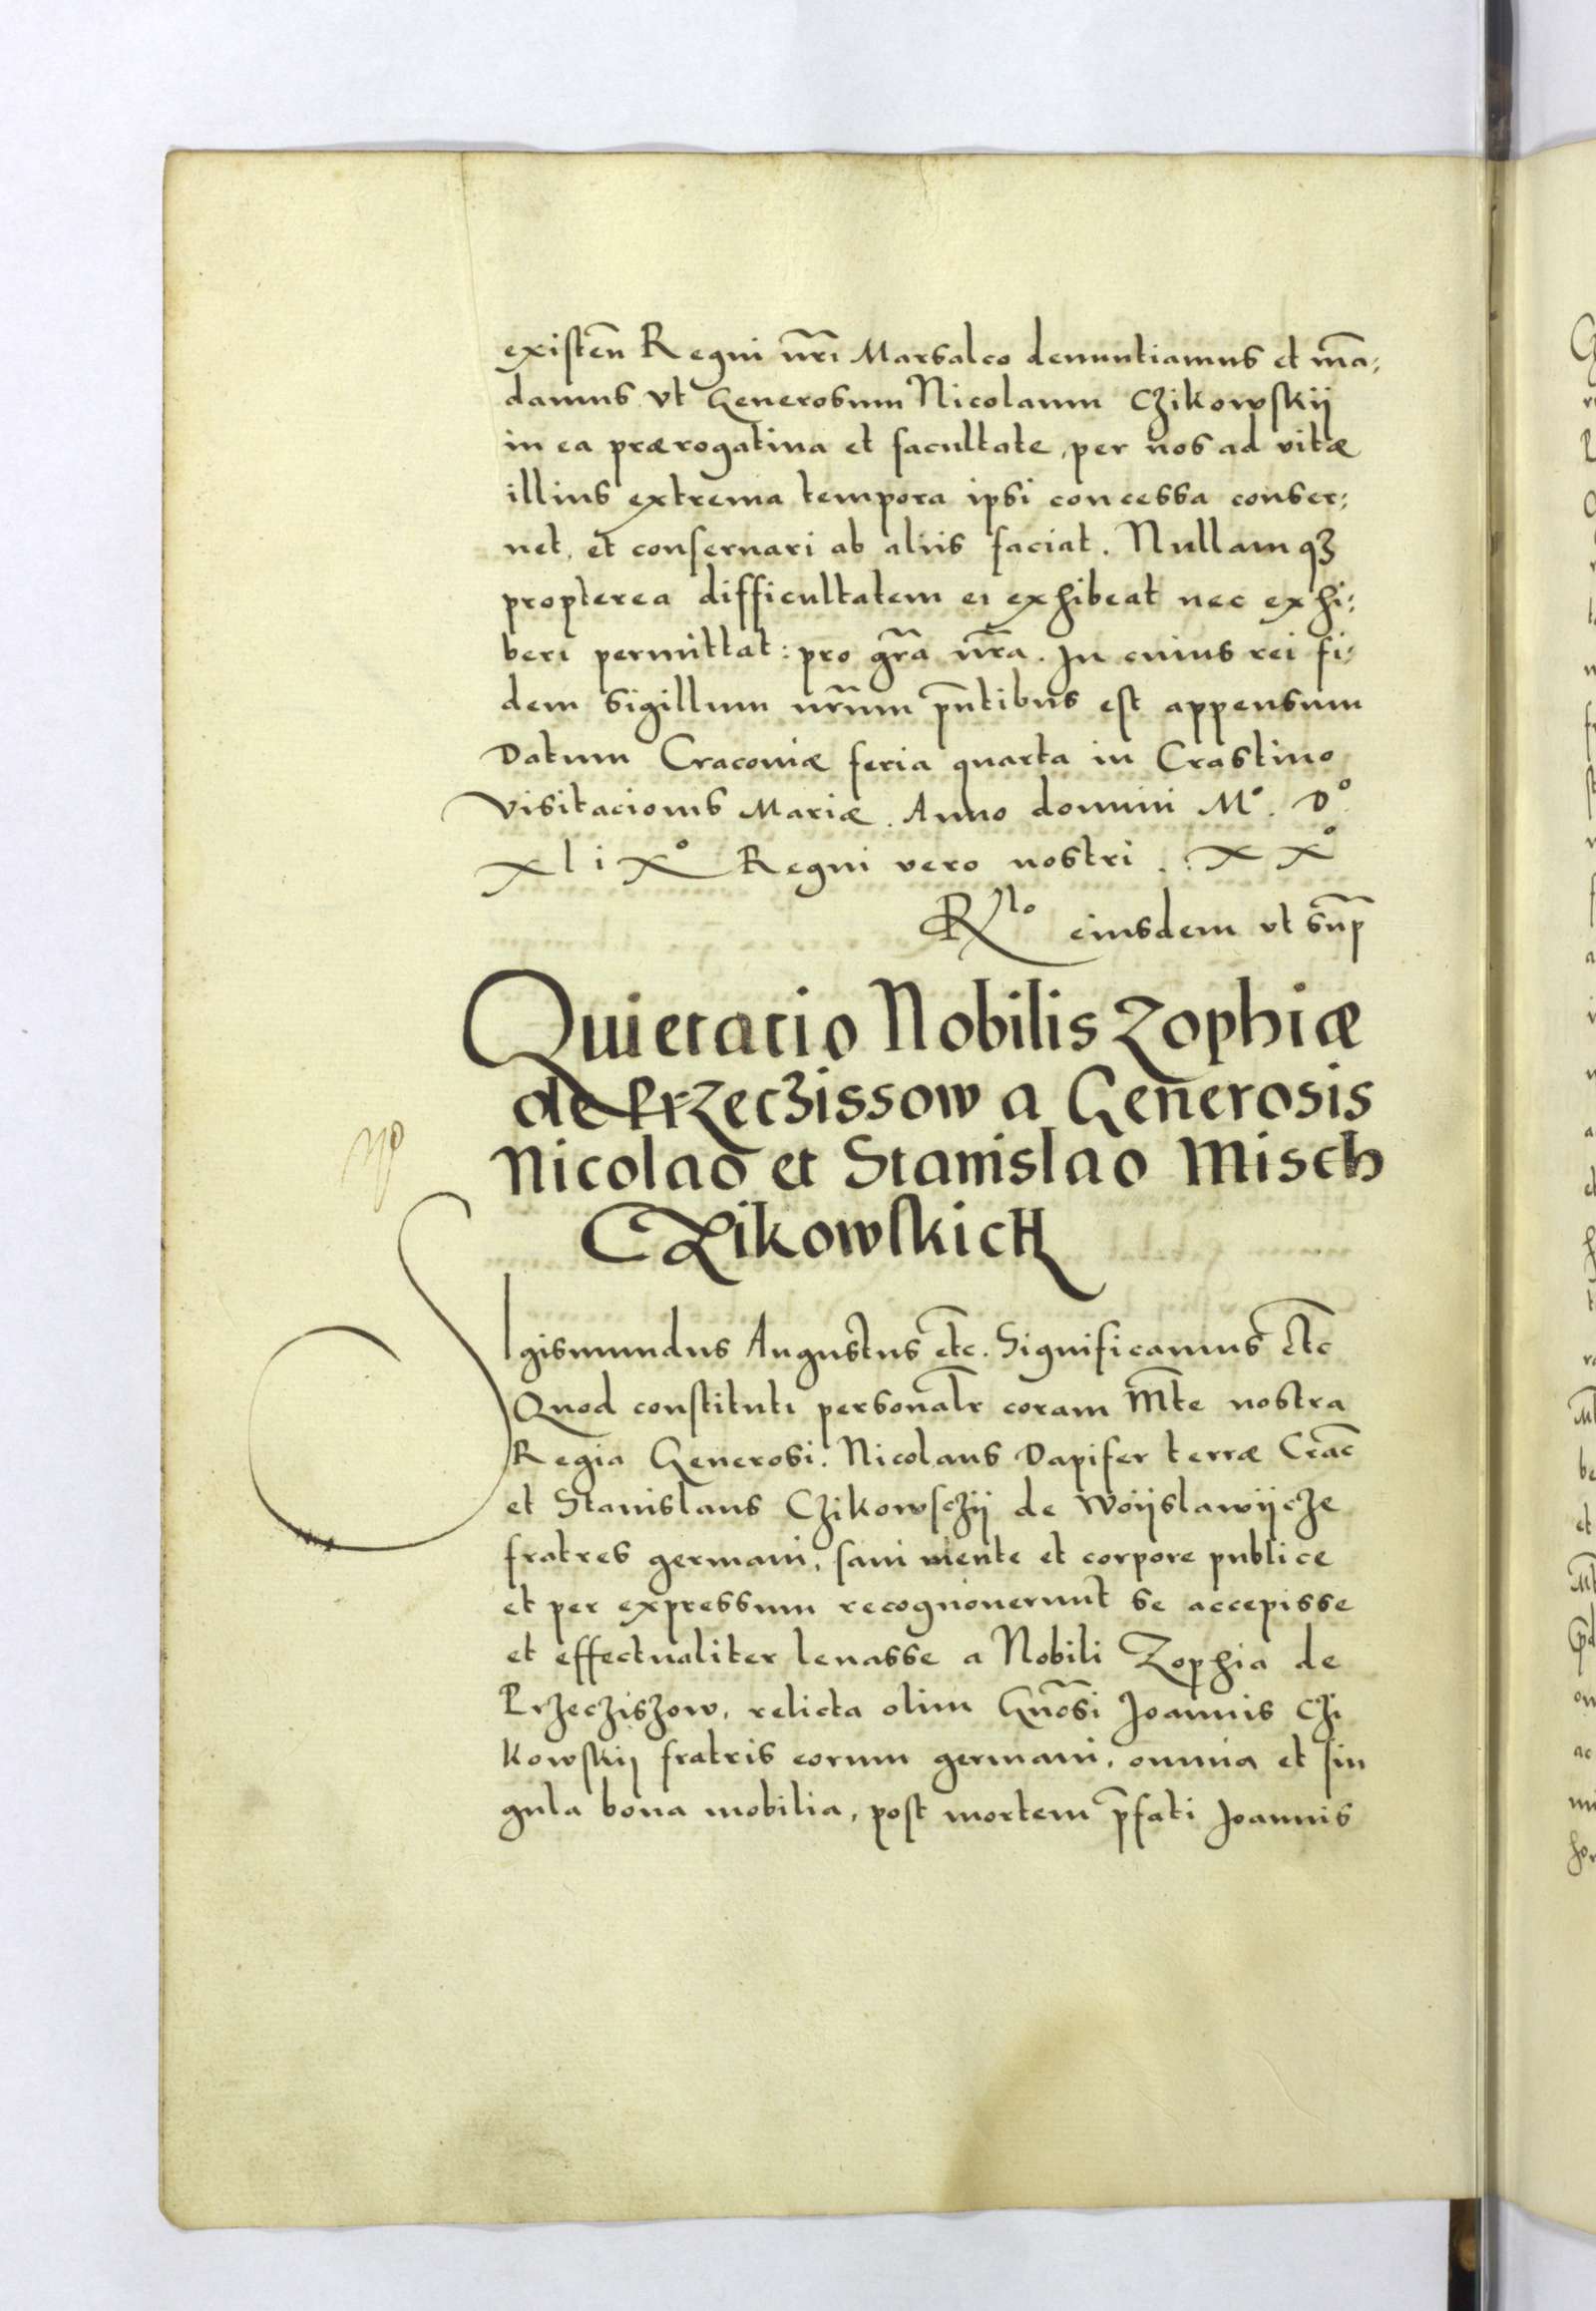 existēn Regni nr̄i Marsalco denuntiamus et mā:
damus vt Generosum Nicolaum Czikowskij
in ea prærogatiua et facultate, per nos ad vitæ
illius extrema tempora ipsi concessa conser:
uet, et conseruari ab aliis faciat. Nullamqꝫ
propterea difficultatem ei exhibeat nec exhi:
beri permittat: pro gr̄a nr̄a. In cuius rei fi:
dem sigillum nr̄um pn̄tibus est appensum
Datum Cracoviæ feria quarta in Crastino
Visitacionis Mariæ. Anno domini M°. D°.
xlix° Regni vero nostri. xx°
R̸lo eiusdem vt sup̄
Quietatio Nobilis Zophiæ
de Przeczissow a Generosis
Nicolao et Stanislao Misch
Czikowskich
Sigismundus Augustus etc̄. Significamus etc̄
Quod constituti personalr̄ coram Mt̄e nostra
Regia Generosi. Nicolaus Dapifer terræ Crac̄
et Stanislaus Czikowsczij de Woijslawijcze
fratres germani, sani mente et corpore publice
et per expressum recognouerunt se accepisse
et effectualiter leuasse a Nobili Zophia de
Przecziszow, relicta olim Gn̄osi Joannis Czi
kowskij fratris eorum germani, omnia et sin
gula bona mobilia, post mortem p̄fati Joannis